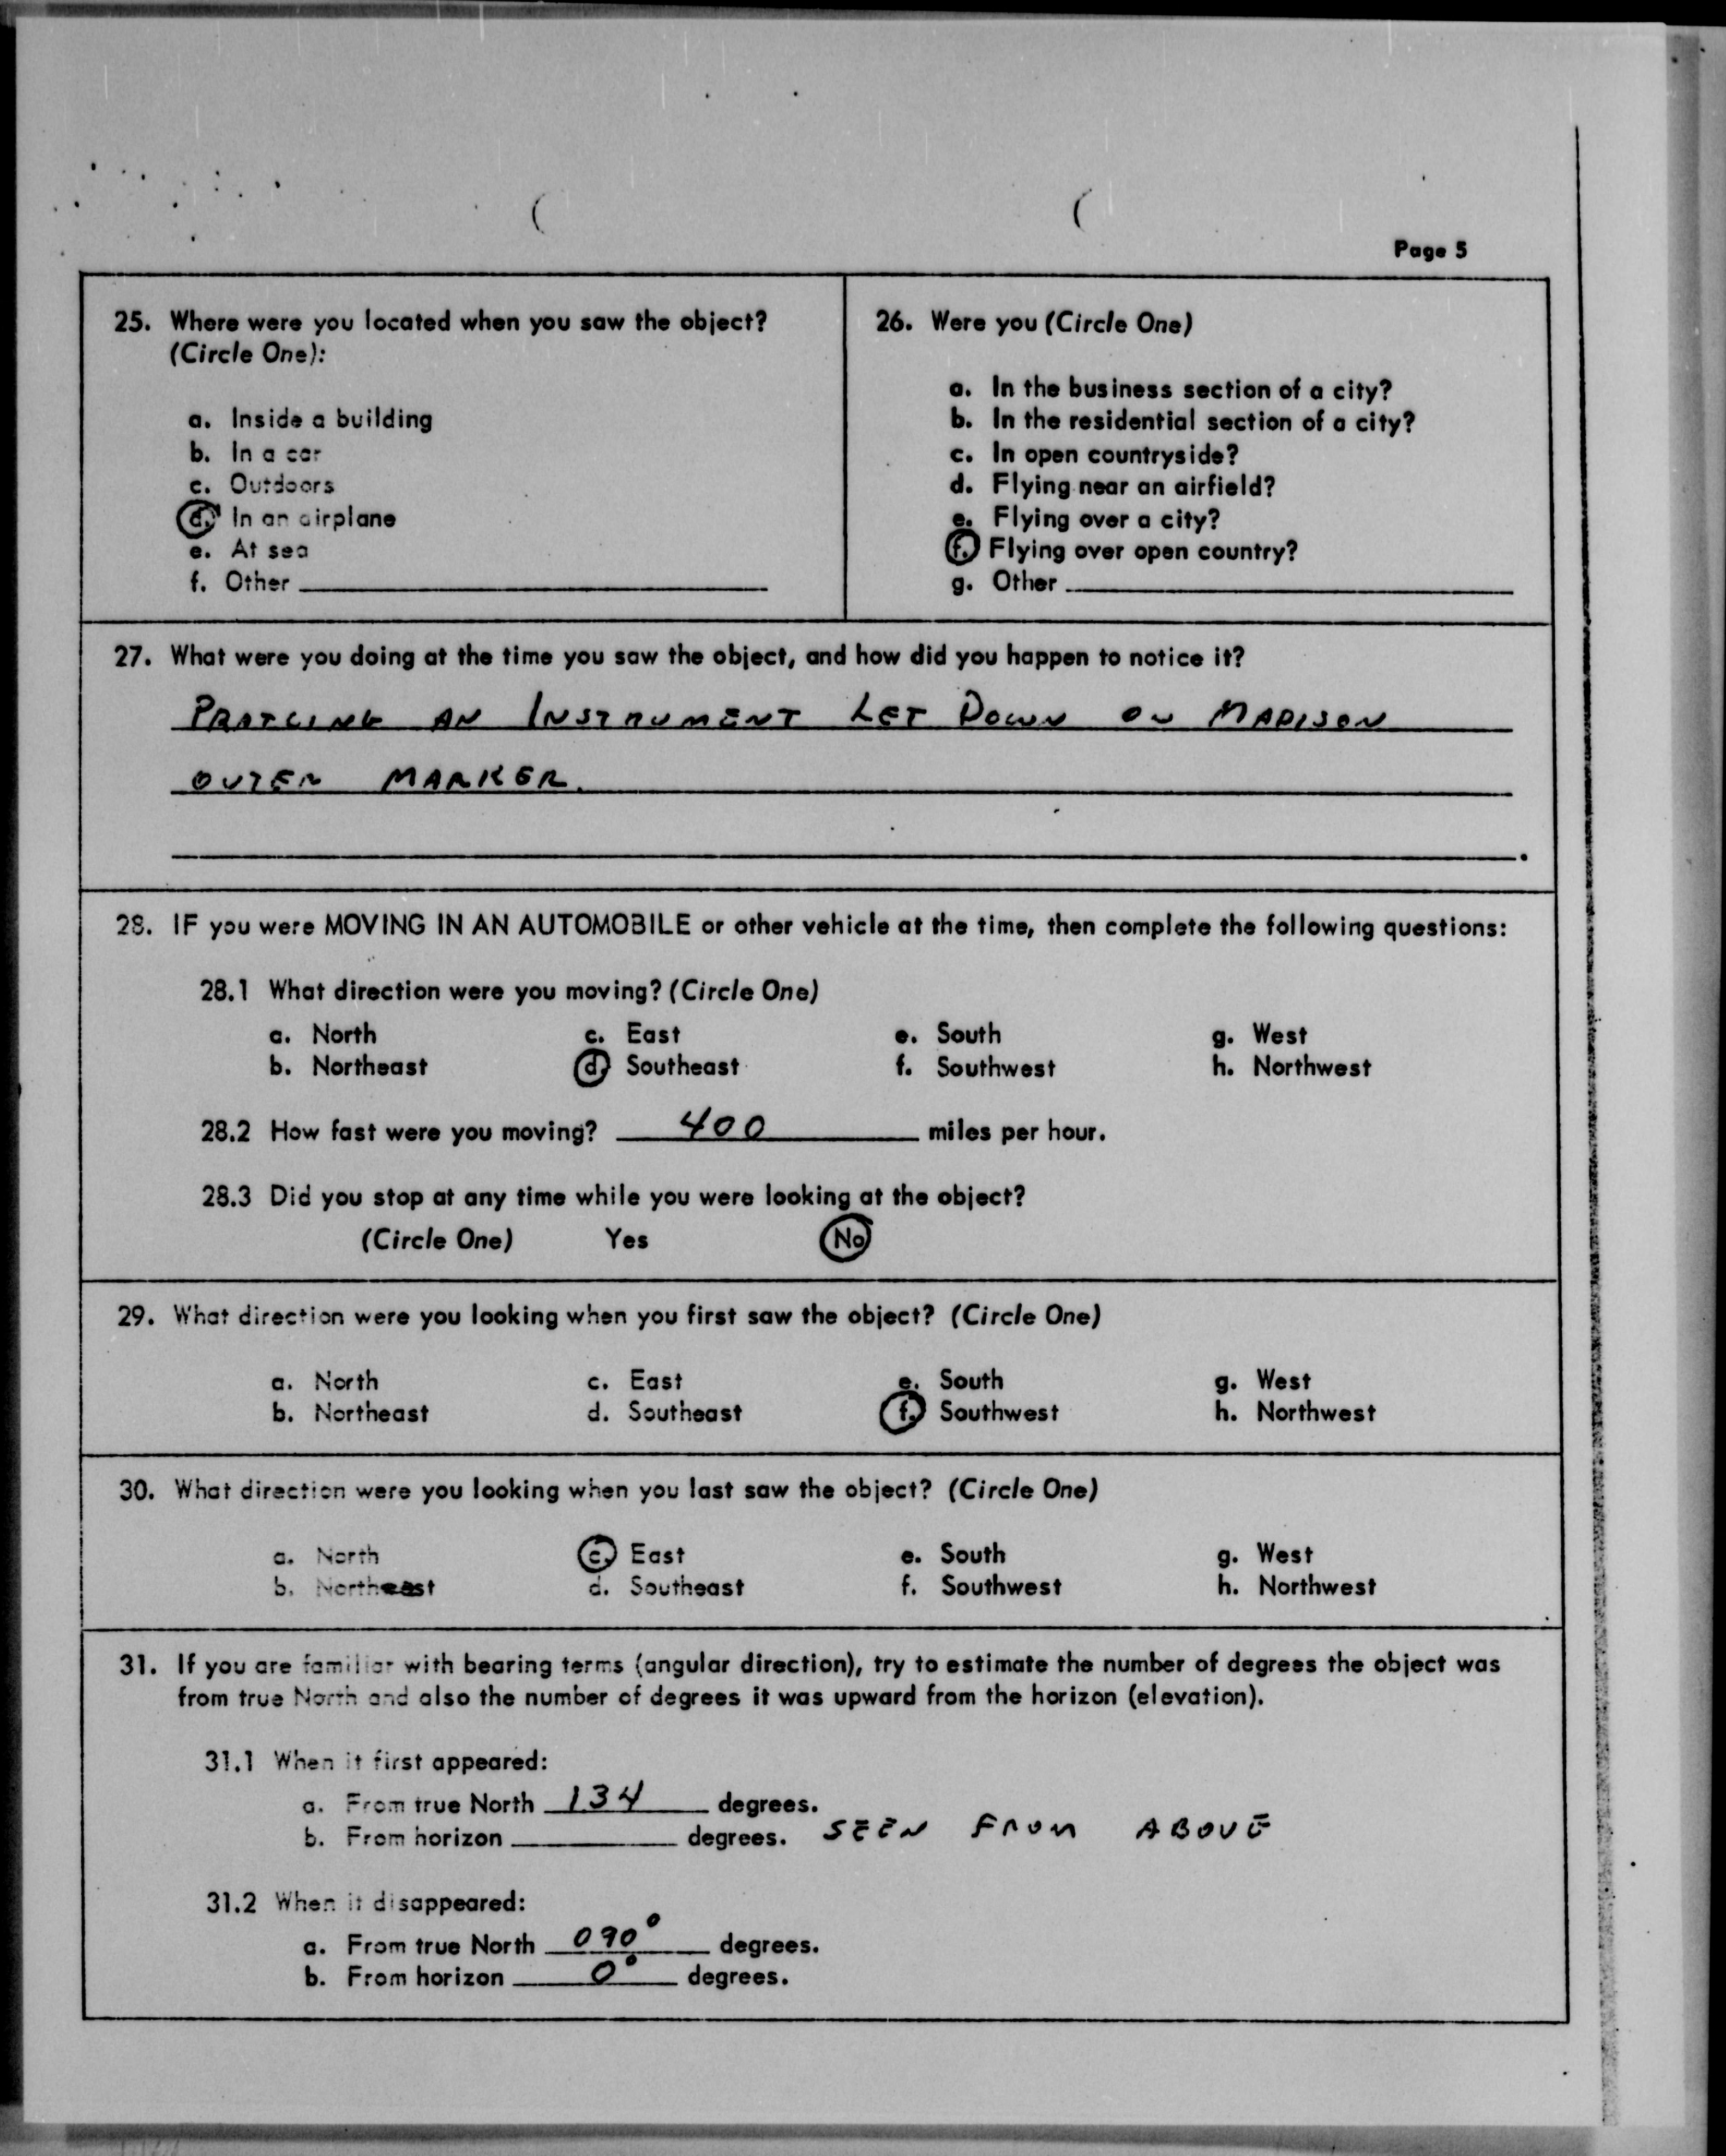 Page 5
25. Where were you located when you saw the object?
(Circle One):
a. Inside a building
b. In a car
c. Outdoors
d. In an airplane
e. At sea
f. Other
26. Were you (Circle One)
a. In the business section of a city?
b. In the residential section of a city?
c. In open countryside?
d. Flying near an airfield?
e. Flying over a city?
f. Flying over open country?
g. Other
27. What were you doing at the time you saw the object, and how did you happen to notice it?
AN INSTRUMENT LET DOWN ON MADISON
OUTER MARKER.
28. IF you were MOVING IN AN AUTOMOBILE or other vehicle at the time, then complete the following questions:
28.1 What direction were you moving? (Circle One)
a. North c. East e. South g. West
b. Northeast d. Southeast f. Southwest h. Northwest
28.2 How fast were you moving? 400 miles per hour.
28.3 Did you stop at any time while you were looking at the object?
(Circle One) Yes No
29. What direction were you looking when you first saw the object? (Circle One)
a. North c. East e. South g. West
b. Northeast d. Southeast f. Southwest h. Northwest
30. What direction were you looking when you last saw the object? (Circle One)
a. North c. East e. South g. West
b. Northeast d. Southeast f. Southwest h. Northwest
31. If you are familiar with bearing terms (angular direction), try to estimate the number of degrees the object was
from true North and also the number of degrees it was upward from the horizon (elevation).
31.1 When it first appeared:
a. From true North 134 degrees.
b. From horizon degrees. SEEN FROM ABOVE
31.2 When it disappeared:
a. From true North 090° degrees.
b. From horizon 0° degrees.